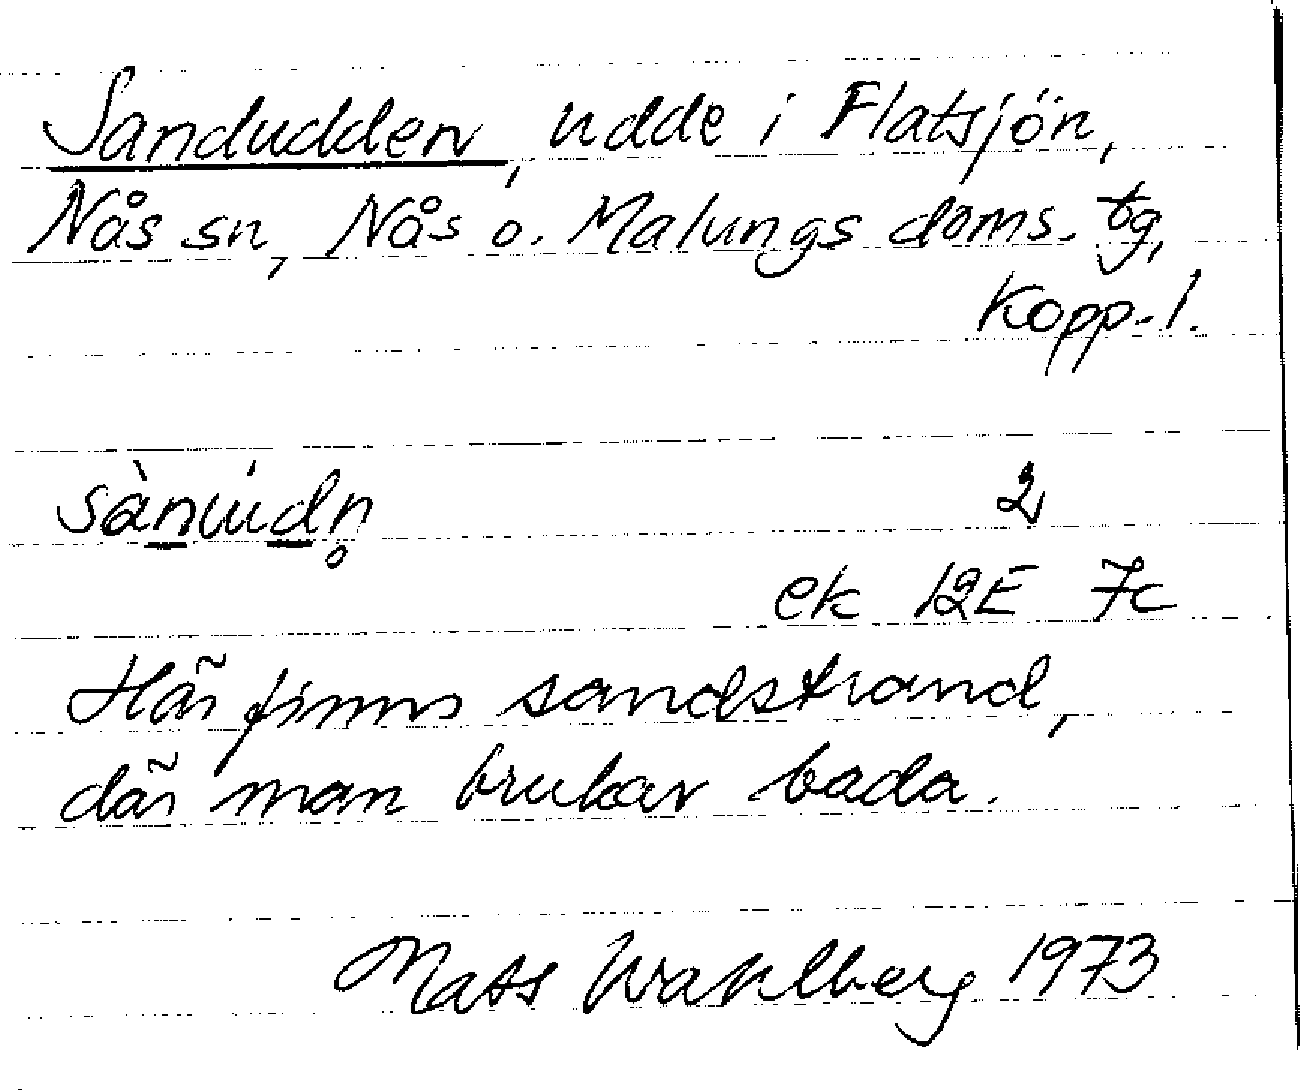 Sandudden, udde i Flatsjön,
Nås sn, Nås o. Malungs doms. tg,
Kopp. l.
sànúdn̥ 2
ek 12E 7c
Här finns sandstrand,
där man brukar bada.
Mats Wahlberg 1973